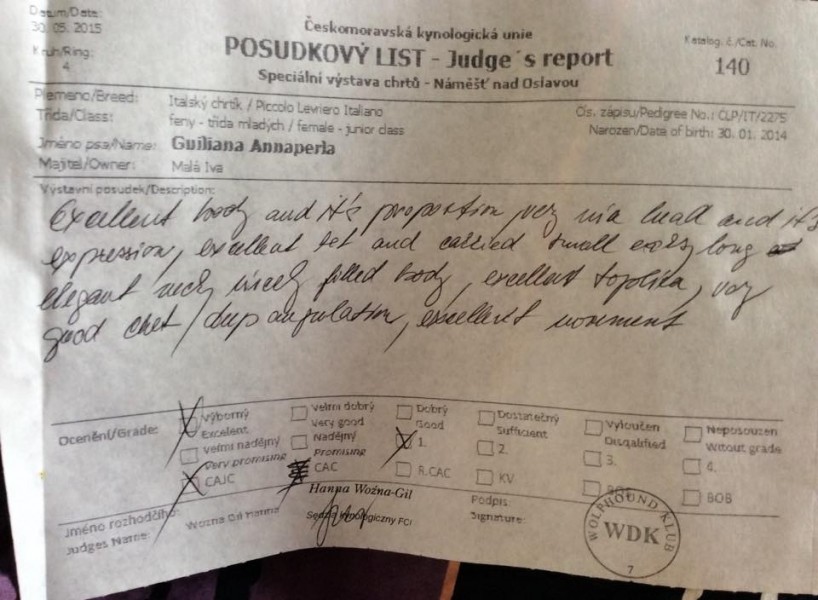 Datum/Date:
30. 05. 2015
Kruh/Ring:
4
Českomoravská kynologická unie
POSUDKOVÝ LIST - Judge´s report
Speciální výstava chrtů - Náměšť nad Oslavou
Katalog. č./Cat. No.
140
Plemeno/Breed: Italský chrtík / Piccolo Levriero Italiano
Třída/Class: feny - třída mladých / female - junior class
Jméno psa/Name: Guiliana Annaperla
Majitel/Owner: Malá Iva
Čís. zápisu/Pedigree No.: CLP/IT/2275
Narozen/Date of birth: 30. 01. 2014
Výstavní posudek/Description:
Excellent body and it's proportion, very head and it's
expression, excellent set and carried small long
elegant neck, nicely filled body, excellent topline, very
good chest / deep angulation, excellent movement
Ocenění/Grade:
Výborný Velmi dobrý Dobrý Dostatečný Vyloučen Neposouzen
Excelent Very good Good Sufficient Disqalified Witout grade
Velmi nadějný Nadějný 1. 2. 3. 4.
Very promising Promising
CAJC CAC R.CAC KV BOS BOB
Jméno rozhodčího:
Judges Name:
Wozna Gil Hanna
Hanna Woźna-Gil
Sędzia kynologiczny FCI
Podpis:
Signature:
WOLFHOUND KLUB
WDK
7